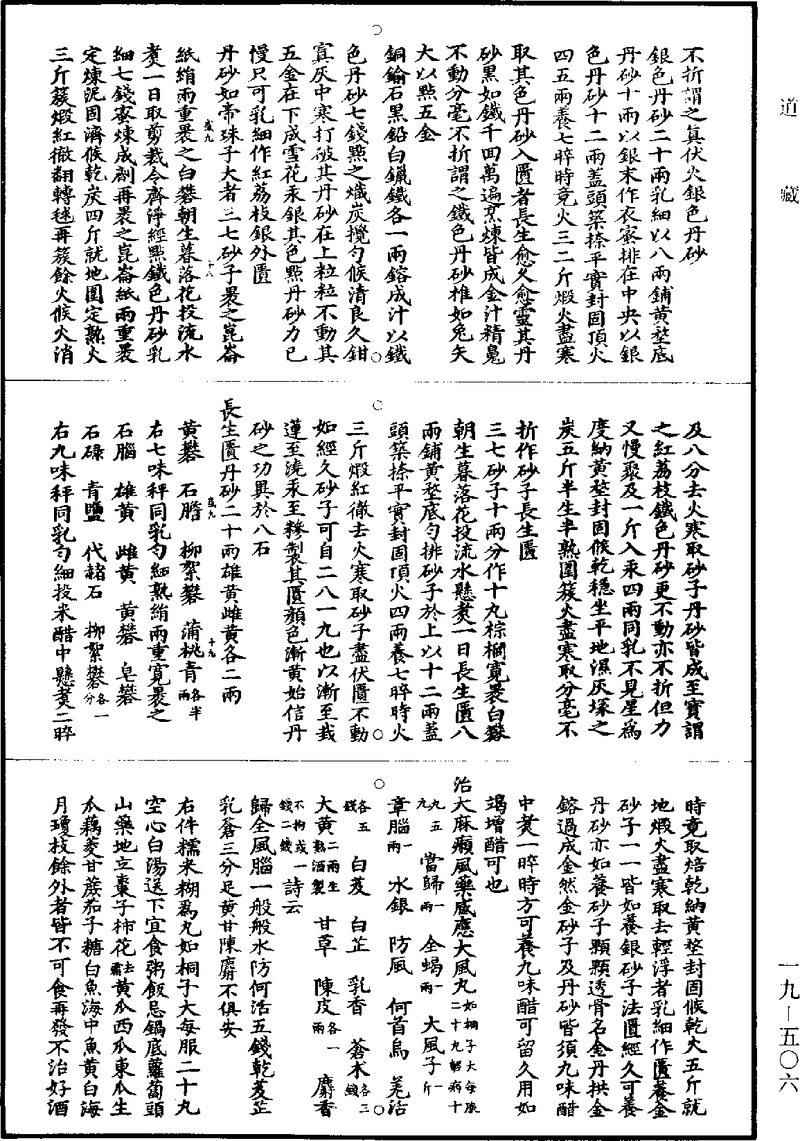 道藏
不折謂之真伏火銀色丹砂
銀色丹砂二十兩乳細以八兩鋪黃埊底
丹砂十兩以銀末作衣蜜排在中央以銀
色丹砂十二兩蓋頭築捺平實封固頂火
四五兩養七晬時竟火三二斤煅火盡寒
取其色丹砂入匱者長生愈久愈靈其丹
砂黑如鐵千回萬遍烹煉皆成金汁精鬼
不動分毫不折謂之鐵色丹砂椎如兔矢
大以點五金
銅鍮石黑鉛白鑞鐵各一兩鎔成汁以鐵
色丹砂七錢點之熾炭攪勻候清良久鉗
寘灰中寒打破其丹砂在上粒粒不動其
五金在下成雪花汞銀其色點丹砂力已
慢只可乳細作紅荔枝銀外匱
丹砂如帝珠子大者三七砂子裹之崑崙
紙絹兩重裹之白礬朝生暮落花投流水
煮一日取剪裁令齊淨經點鐵色丹砂乳
細七錢蜜煉成劑再裹之崑崙紙兩重裹
定煉泥固濟候乾炭四斤就地圍定熟火
三斤簇煅紅徹翻轉毬再簇餘火候火消
及八分去火寒取砂子丹砂皆成至寶謂
之紅荔枝鐵色丹砂更不動亦不折但力
又慢聚及一斤入汞四兩同乳不見星爲
度納黃埊封固候乾穩坐平地濕灰堢之
炭五斤半生半熟圍簇火盡寒取分毫不
折作砂子長生匱
三七砂子十兩分作十九棕櫚寬裹白礬
朝生暮落花投流水懸煮一日長生匱八
兩鋪黃埊底勻排砂子於上以十二兩蓋
頭築捺平實封固頂火四兩養七晬時火
三斤煅紅徹去火寒取砂子盡伏匱不動
如經久砂子可自二八一九也以漸至栽
蓮至澆汞至糝製其匱顏色漸黃始信丹
砂之功異於八石
長生匱丹砂二十兩雄黃雌黃各二兩
黃礬 石膽 柳絮礬 蒲桃青各半兩
右七味秤同乳勻細熟絹兩重寬裹之
石腦 雄黃 雌黃 黃礬 皂礬
石碌 青鹽 代赭石 柳絮礬各一分
右九味秤同乳勻細投米醋中懸煮二晬
時竟取焙乾納黃埊封固候乾火五斤就
地煅火盡寒取去輕浮者乳細作匱養金
砂子一一皆如養銀砂子法匱經久可養
丹砂亦如養砂子顆顆透骨名金丹拱金
鎔過成金然金砂子及丹砂皆須九味醋
中煮一晬時方可養九味醋可留久用如
竭增醋可也
治大麻癩風藥感應大風丸如桐子大每服二十九輕病十九五 當歸一兩 全蝎一兩 大風子一斤
章腦一兩 水銀 防風 何首烏 羌活
各五錢 白芨 白芷 乳香 蒼木各三
大黃二兩生熟酒製 甘草 陳皮各一兩 麝香
不拘或一錢二錢 詩云
歸全風腦一般般水防何活五錢乾芨芷
乳蒼三分足黃甘陳麝不俱安
右件糯米糊爲丸如桐子大每服二十九
空心白湯送下宜食粥飯忌鍋底蘿蔔頭
山藥地立棗子柿花黃瓜西瓜東瓜生
瓜藕菱甘蔗茄子糖白魚海中魚黃白海
月瓊枝餘外者皆不可食再發不治好酒
一九—五〇六